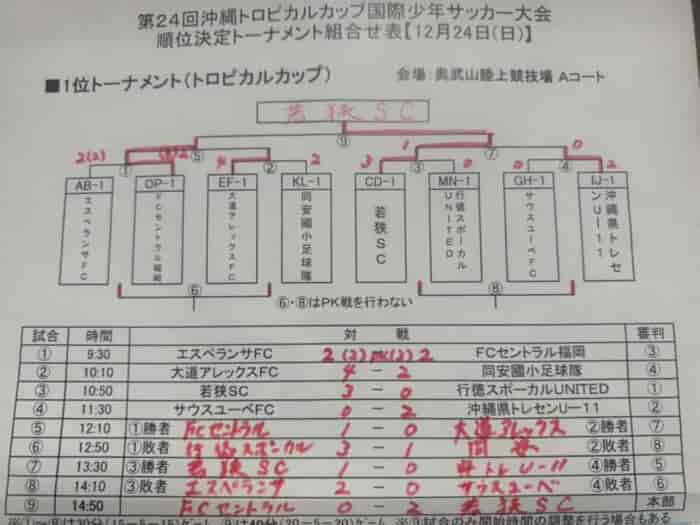 第24回沖縄トロピカルカップ国際少年サッカー大会
順位決定トーナメント組合せ表【12月24日(日)】
■1位トーナメント(トロピカルカップ) 会場:奥武山陸上競技場 Aコート
若狭SC
⑨
⑤ 1 ⑦ 0
2(2) (3)2 4 2 3 0 0 2
① ② ③ ④
AB-1 OP-1 EF-1 KL-1 CD-1 MN-1 GH-1 IJ-1
エスペランサFC
FCセントラル福岡
大道アレックスFC
同安國小足球隊
若狭SC
行徳スポーカルUNITED
サウスユーベFC
沖縄県トレセンU-11
⑥ ⑧
⑥・⑧はPK戦を行わない
試合 時間 対戦 審判
① 9:30 エスペランサFC 2 (2)PK(3) 2 FCセントラル福岡 ③
② 10:10 大道アレックスFC 4 - 2 同安國小足球隊 ④
③ 10:50 若狭SC 3 - 0 行徳スポーカルUNITED ①
④ 11:30 サウスユーベFC 0 - 2 沖縄県トレセンU-11 ②
⑤ 12:10 ①勝者 FCセントラル 1 - 0 大道アレックス ②勝者 ⑦
⑥ 12:50 ①敗者 行徳スポーカル 3 - 1 同安 ②敗者 ⑧
⑦ 13:30 ③勝者 若狭SC 1 - 0 県トレU-11 ④勝者 ⑤
⑧ 14:10 ③敗者 エスペランサ 2 - 0 サウスユーベ ④敗者 ⑥
⑨ 14:50 FCセントラル 0 - 2 若狭SC 本部